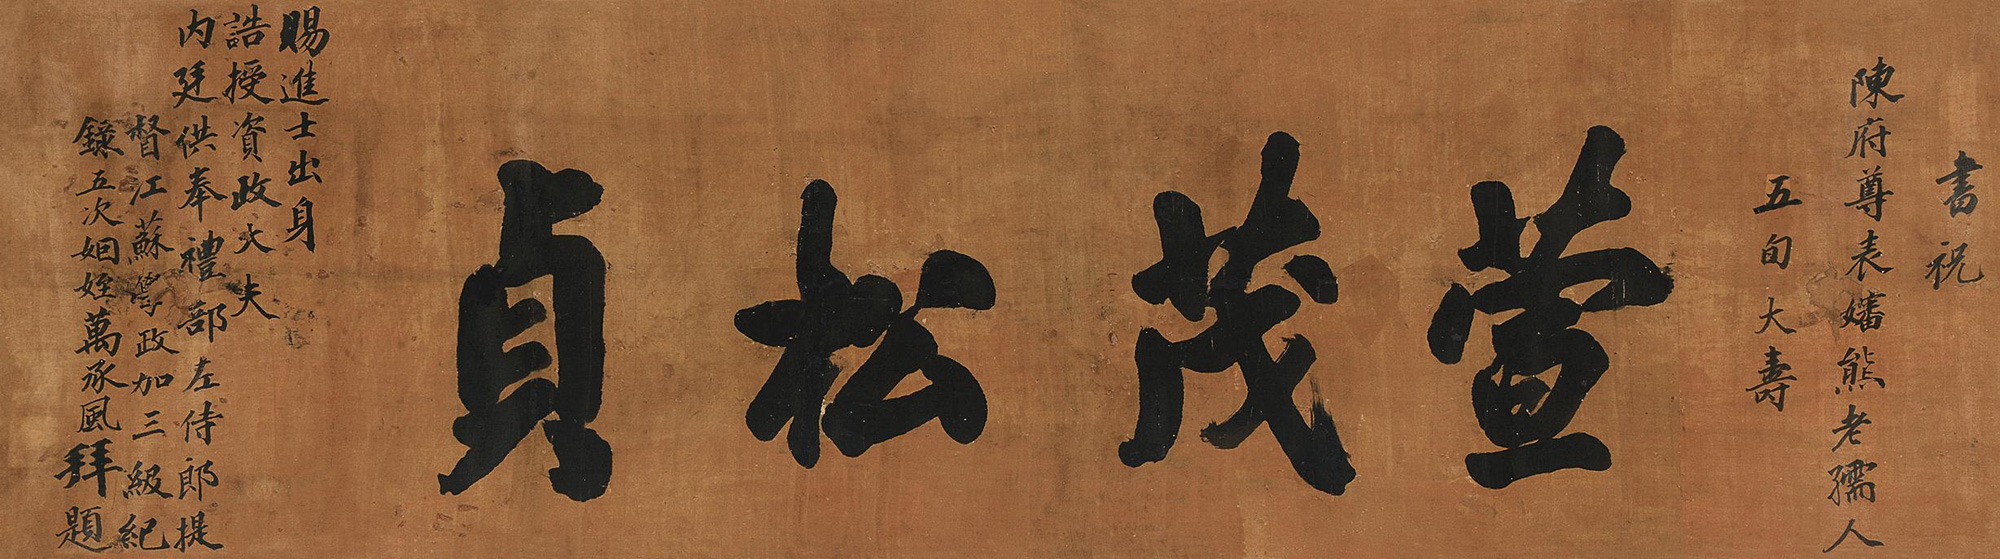 書祝
陳府尊表嬸熊老孺人
五旬大壽
萱茂松貞
賜進士出身
誥授資政大夫
内廷供奉禮部左侍郎提
督江蘇學政加三級紀
錄五次姻姪萬承風拜題